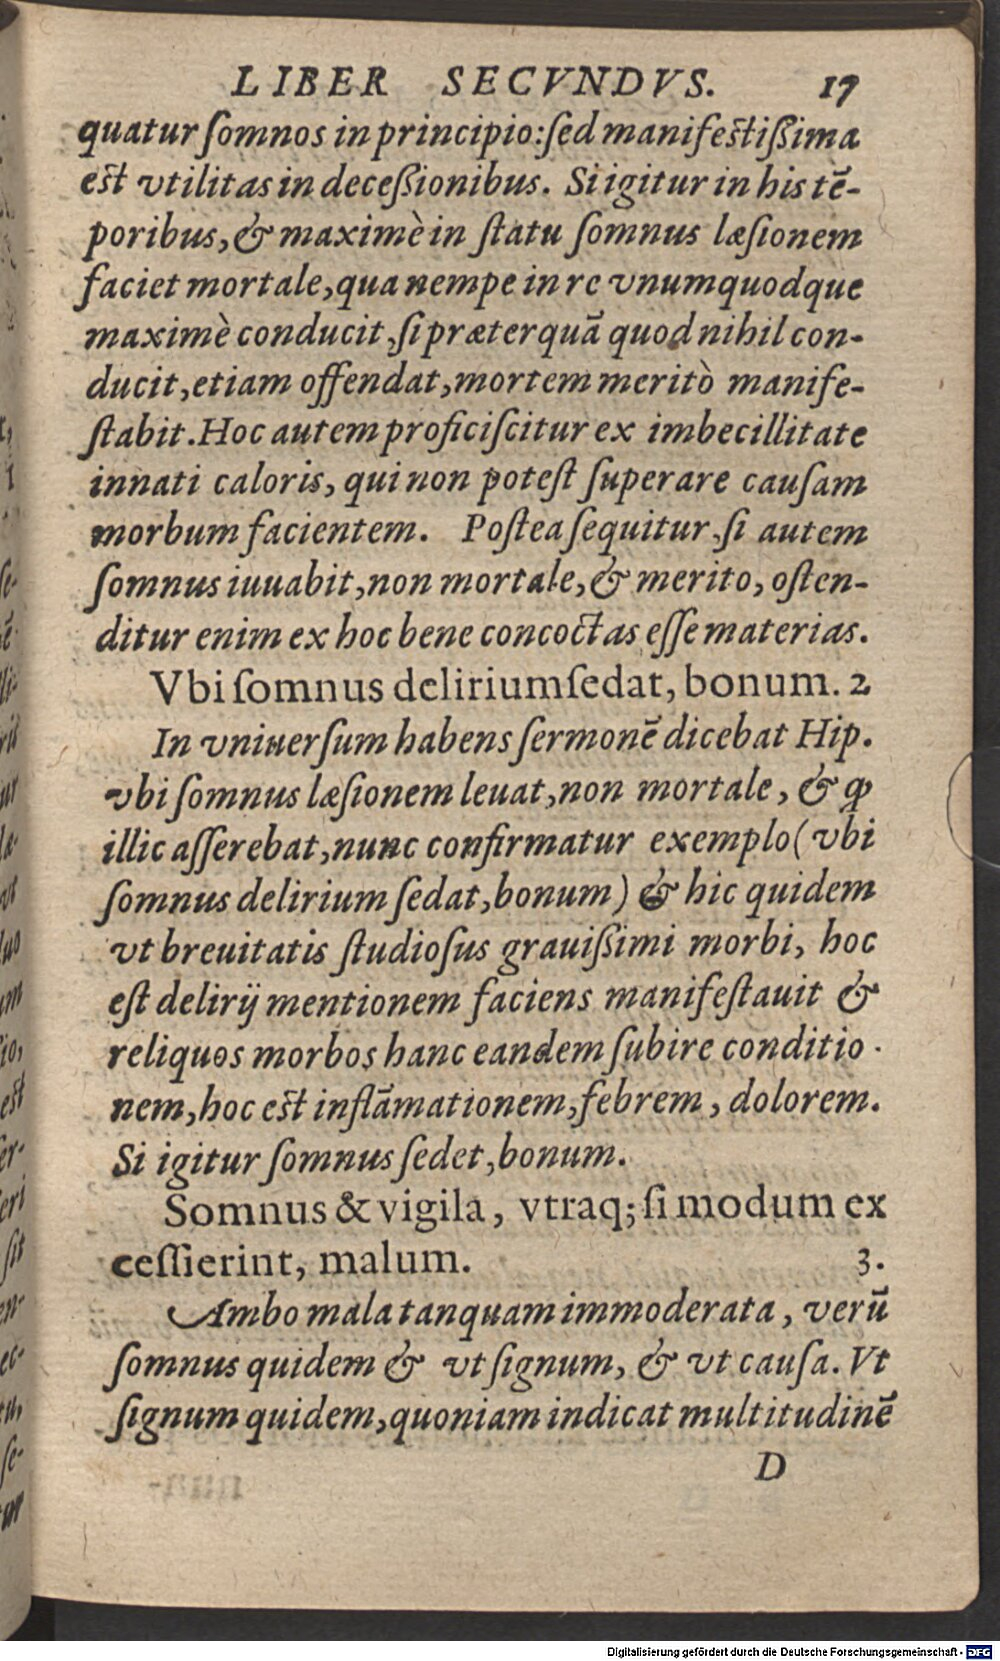 LIBER SECVNDVS. 17
quatur ſomnos in principio: ſed manifestißima
est vtilitas in deceßionibus. Si igitur in his tē-
poribus, & maximè in ſtatu ſomnus læſionem
faciet mortale, qua nempe in re vnumquodque
maximè conducit, ſi præterquā quod nihil con-
ducit, etiam offendat, mortem meritò manife-
ſtabit. Hoc autem proficiſcitur ex imbecillitate
innati caloris, qui non poteſt ſuperare cauſam
morbum facientem. Poſtea ſequitur, ſi autem
ſomnus iuuabit, non mortale, & merito, oſten-
ditur enim ex hoc bene concoctas eſſe materias.
Vbi ſomnus delirium ſedat, bonum. 2
In vniuerſum habens ſermonē dicebat Hip.
vbi ſomnus læſionem leuat, non mortale, & ꝙ
illic aſſerebat, nunc confirmatur exemplo (vbi
ſomnus delirium ſedat, bonum) & hic quidem
vt breuitatis ſtudioſus grauißimi morbi, hoc
eſt delirij mentionem faciens manifeſtauit &
reliquos morbos hanc eandem ſubire conditio-
nem, hoc est inflāmationem, febrem, dolorem.
Si igitur ſomnus ſedet, bonum.
Somnus & vigila, vtraq; ſi modum ex
ceſſierint, malum. 3.
Ambo mala tanquam immoderata, verū
ſomnus quidem & vt ſignum, & vt cauſa. Vt
ſignum quidem, quoniam indicat multitudinē
D
Digitalisierung gefördert durch die Deutsche Forschungsgemeinschaft - DFG